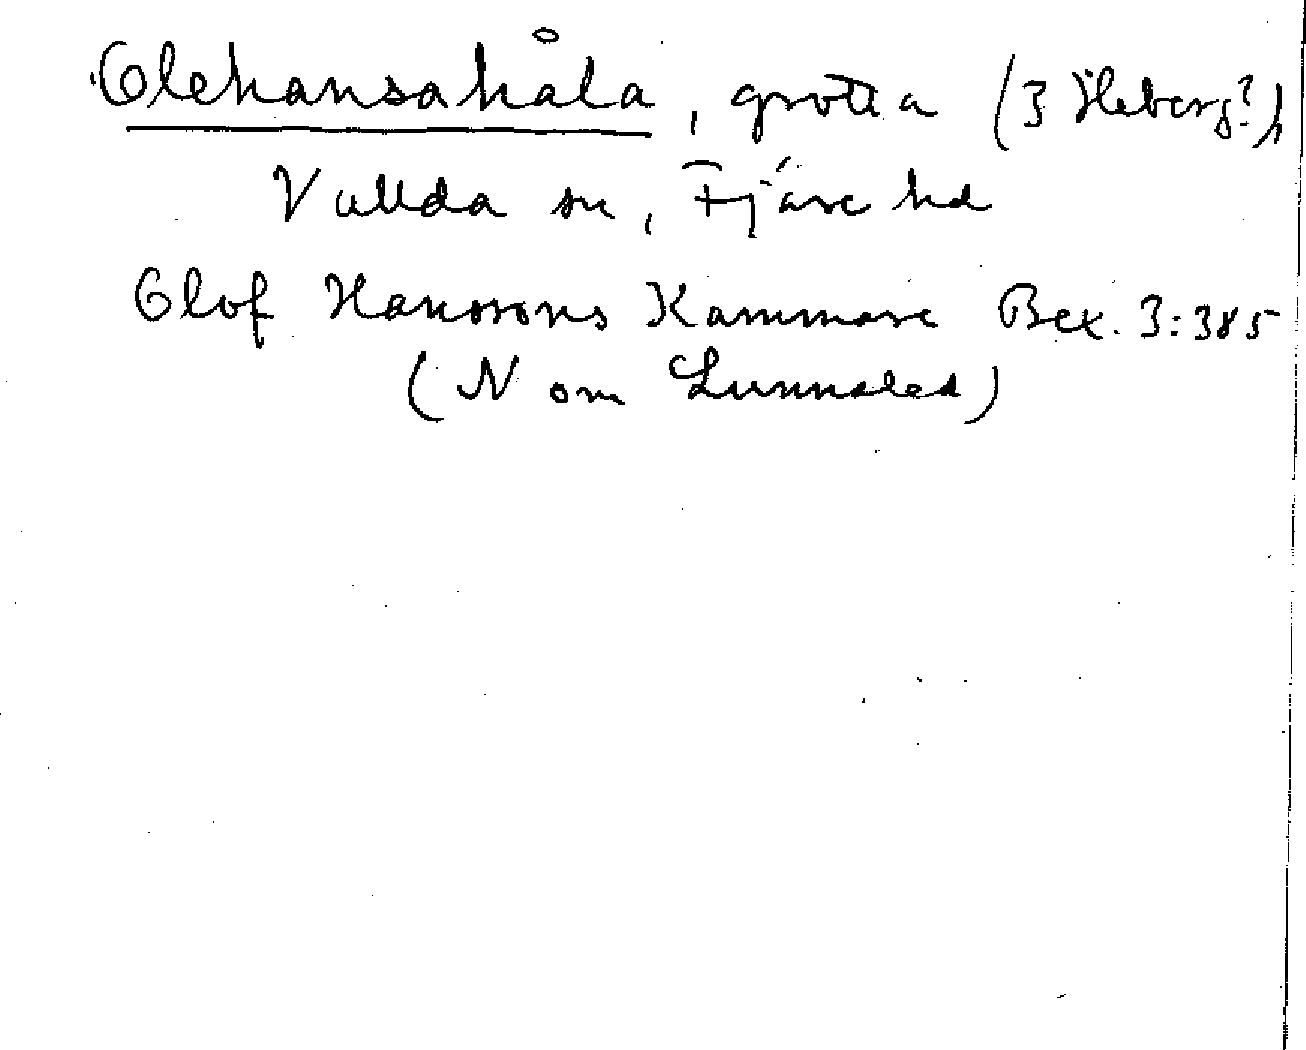 Olehansahåla, grotta (3 Heberg?),
Vallda sn, Fjäre hd
Olof Hanssons Kammare Bex. 3:385
(N om Lunnaled)